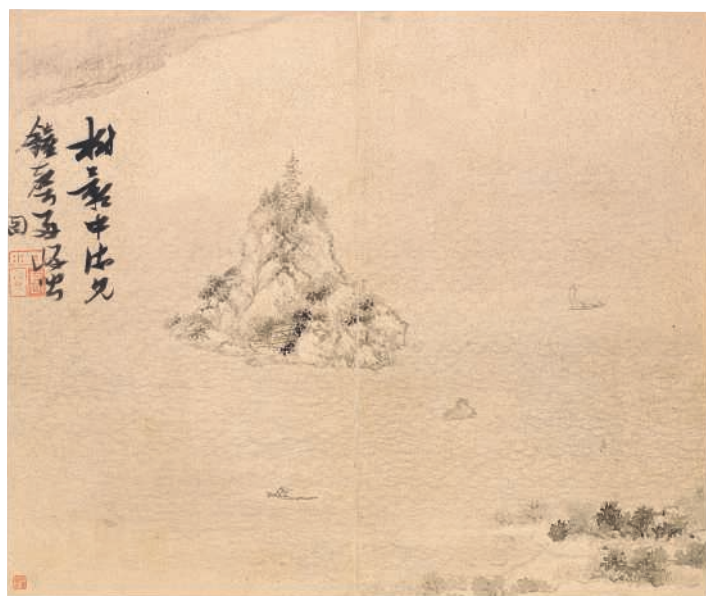 樹影中流見
鐘聲兩岸
聞